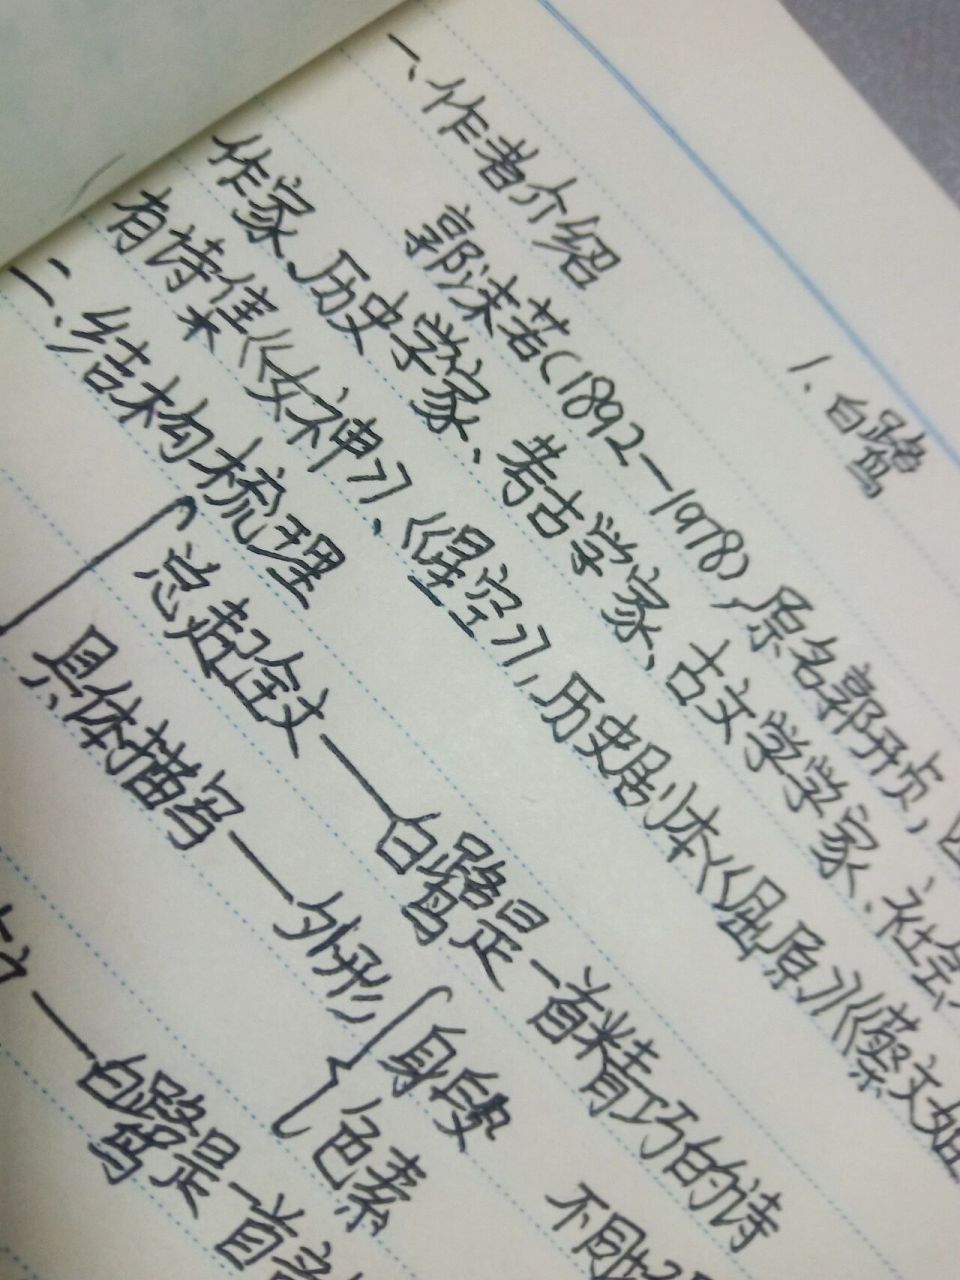 1、白鹭
一、作者介绍
郭沫若(1892—1978),原名郭开贞,
作家、历史学家、考古学家、古文学学家、社会
有诗集《女神》、《星空》,历史剧本《屈原》《蔡文姬
二、结构梳理
总起全文——白鹭是一首精巧的诗
具体描写—外形
身段
色素
不同
—白鹭是一首